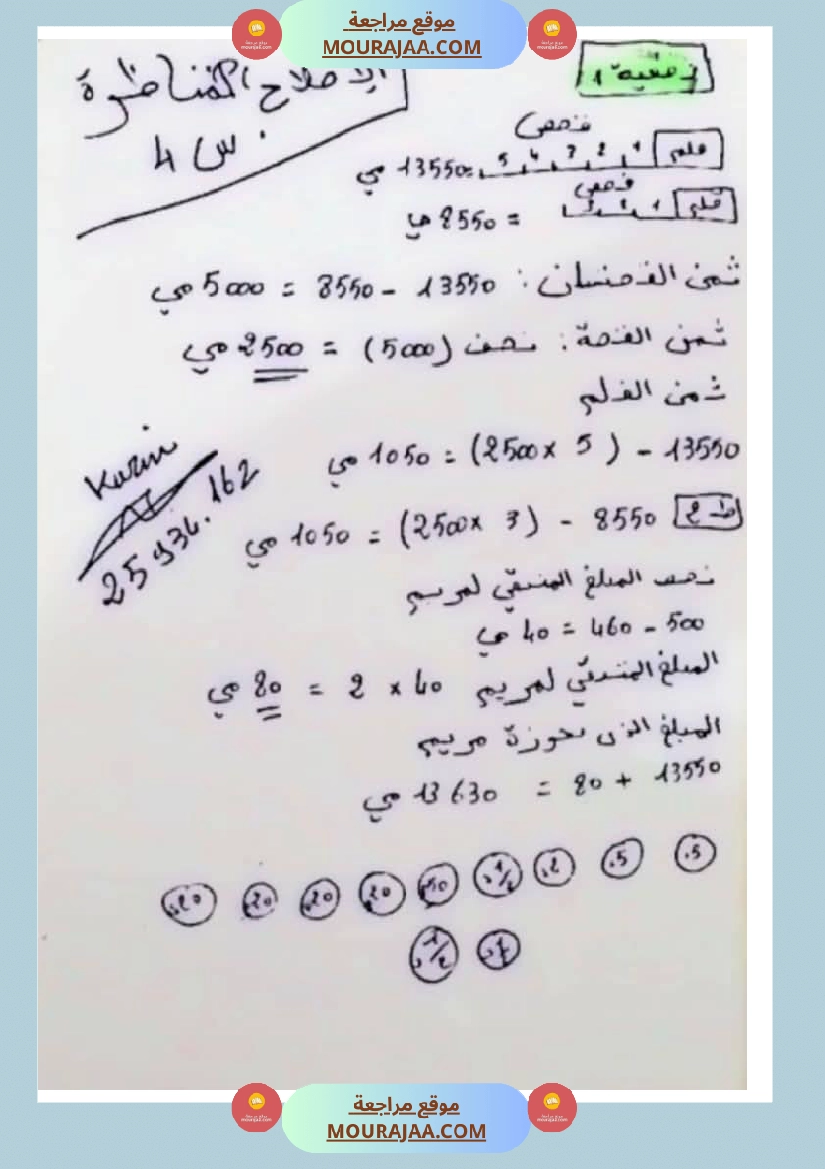 موقع مراجعة
MOURAJAA.COM
الإصلاح المناظرة
س 4
وضعية 1
قصص
قلم 1 2 3 4 5 = 13550 مي
قصص
قلم 1 = 8550 مي
ثمن القصتان : 13550 - 8550 = 5000 مي
ثمن القصة : نصف (5000) = 2500 مي
ثمن القلم
13550 - (5 × 2500) = 1050 مي
ط 2 8550 - (3 × 2500) = 1050 مي
Karim
25 934.162
نصف المبلغ المتبقي لمريم
500 - 460 = 40 مي
المبلغ المتبقي لمريم 40 × 2 = 80 مي
المبلغ الذي بحوزة مريم
13550 + 80 = 13630 مي
5 5 2 1/2 50 20 20 20 20
1 1/2
موقع مراجعة
MOURAJAA.COM